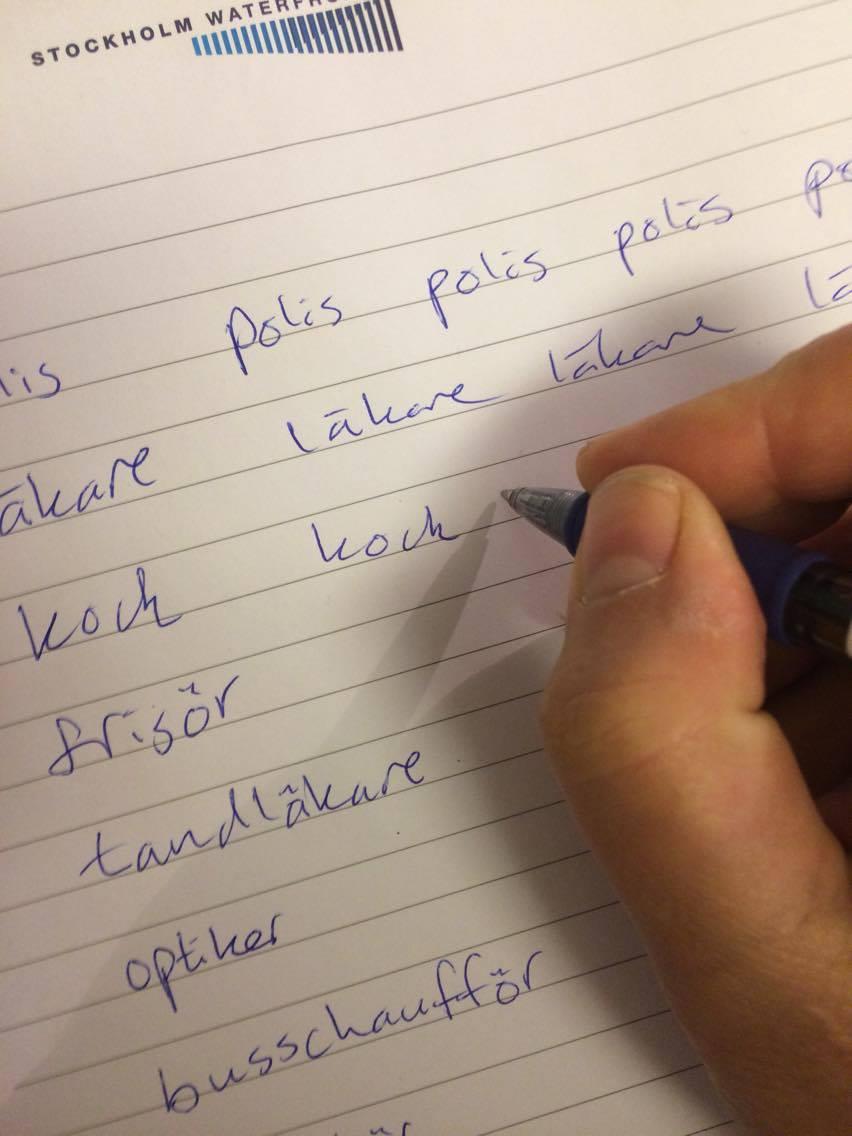 STOCKHOLM WATERFR
lis polis polis polis po
äkare läkare läkare lä
koch koch
frisör
tandläkare
optiker
busschaufför